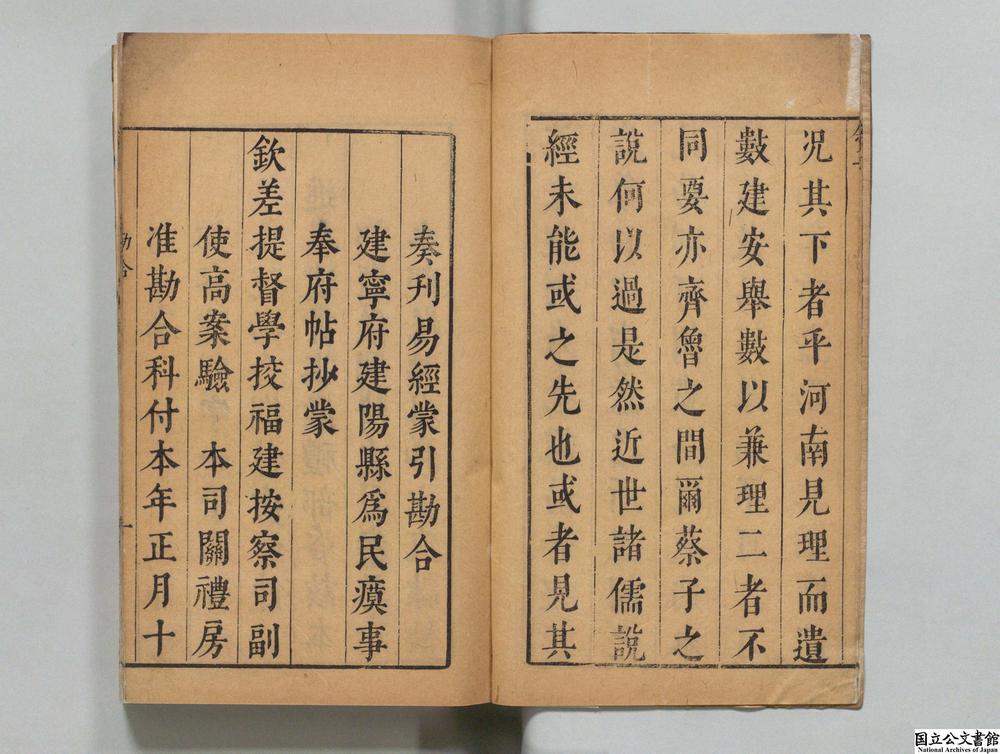 况其下者乎河南見理而遺
數建安舉數以兼理二者不
同要亦齊魯之間爾蔡子之
說何以過是然近世諸儒說
經未能或之先也或者見其
奏刊易經蒙引勘合
建寧府建陽縣爲民瘼事
奉府帖抄蒙
欽差提督學挍福建按察司副
使高案驗 本司關禮房
准勘合科付本年正月十
勘合
国立公文書館
National Archives of Japan